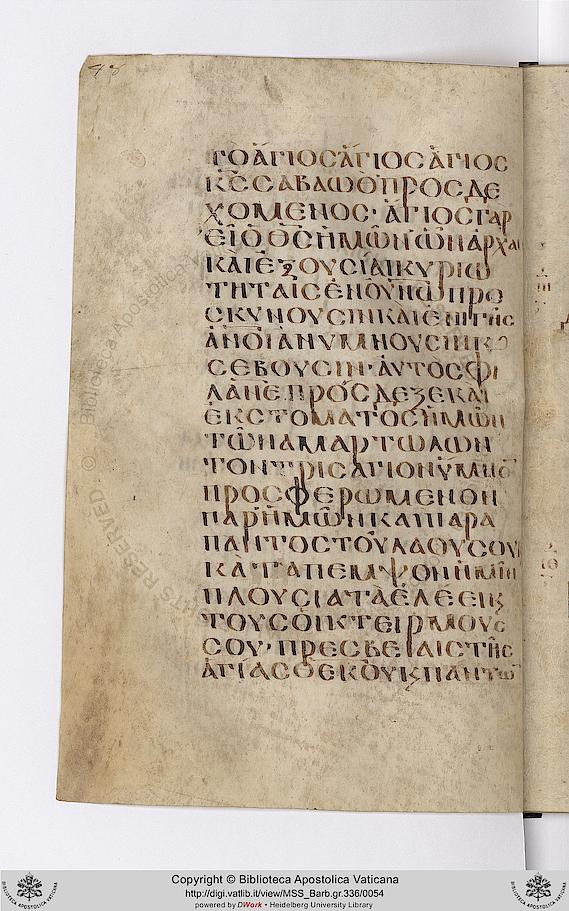 ΤΟ ἉΓΙΟΣ ἍΓΙΟΣ ἍΓΙΟΣ
ΚΕ ΣΑΒΑΩΘ Ὁ ΠΡΟΣΔΕ
ΧΟΜΕΝΟΣ· ἍΓΙΟΣ ΓΑΡ
ΕἾ Ὁ ΘΣ ἩΜΩΝ ὯΝ ἈΡΧΑΙ
ΚΑΙ ἘΞΟΥΣΊΑΙ ΚΥΡΙΩ
ΤΗΤΑΙΣ ἘΝ ΟΥΝΩ ΠΡΟ
ΣΚΥΝΟΥΣΙΝ ΚΑΙ ἘΠΙ ΓΗΣ
ἈΝΟΙ ἈΝΥΜΝΟΥΣΙΝ Κ
ΣΕΒΟΥΣΙΝ· ἈΥΤΟΣ ΦΙ
ΛΑΝΕ ΠΡΌΣΔΕΞΕ ΚΑΙ
ἘΚ ΣΤΟΜΑΤΟΣ ἩΜΩΝ
ΤΩΝ ΑΜΑΡΤΩΛΩΝ
ΤΟΝ ΤΡΙΣΑΓΙΟΝ ὝΜΝΟ
ΠΡΟΣΦΕΡΩΜΕΝΟΝ
ΠΑΡ ἩΜΩΝ ΚΑΙ ΠΑΡΑ
ΠΑΝΤΟΣ ΤΟΥ ΛΑΟΥ ΣΟΥ
ΚΑΤΑΠΕΜΨΟΝ ἩΜΙΝ
ΠΛΟΥΣΙΑ ΤΑ ἘΛΈΕΙ Κ
ΤΟΥΣ ΟἸΚΤΕΙΡΜΟΥΣ
ΣΟΥ· ΠΡΕΣΒΕΊΑΙΣ ΤΗΣ
ἉΓΊΑΣ ΘΕΚΟΥ Κ ΠΑΝΤΩ
Copyright © Biblioteca Apostolica Vaticana
http://digi.vatlib.it/view/MSS_Barb.gr.336/0054
powered by DWork • Heidelberg University Library